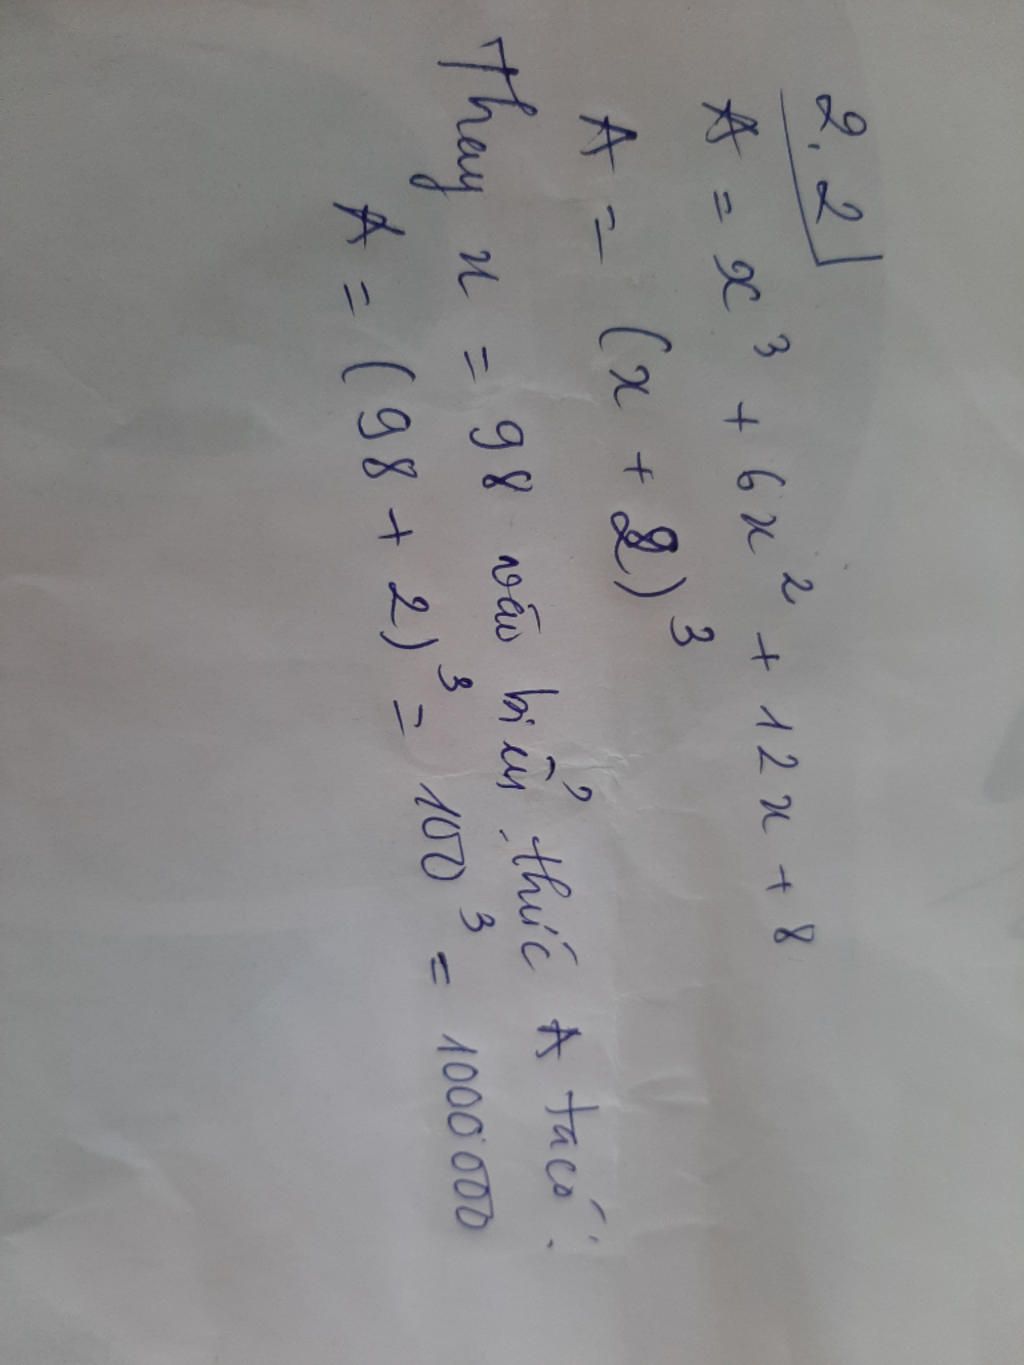 2.2
A = x³ + 6x² + 12x + 8
A = (x + 2)³
Thay x = 98 vào biểu thức A ta có:
A = (98 + 2)³ = 100³ = 1000 000